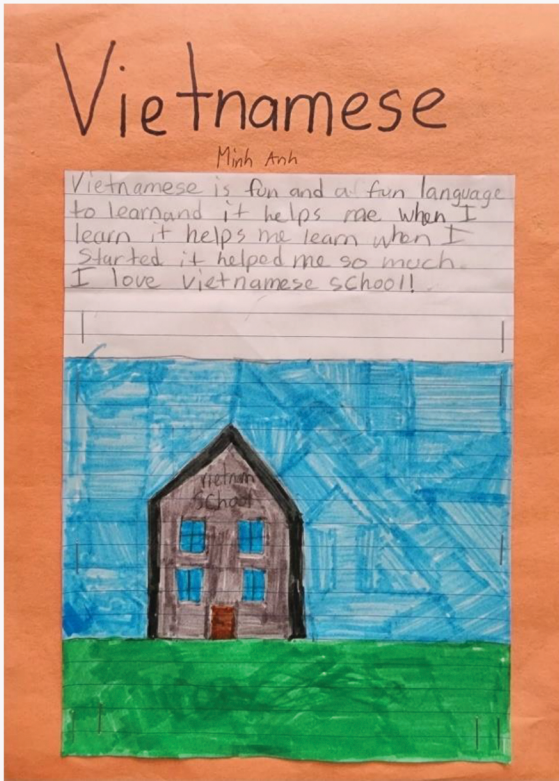 Vietnamese
Minh Anh
Vietnamese is fun and a fun language
to learnand it helps me when I
learn it helps me learn when I
Started it helped me so much.
I love Vietnamese school!
Vietnam
School